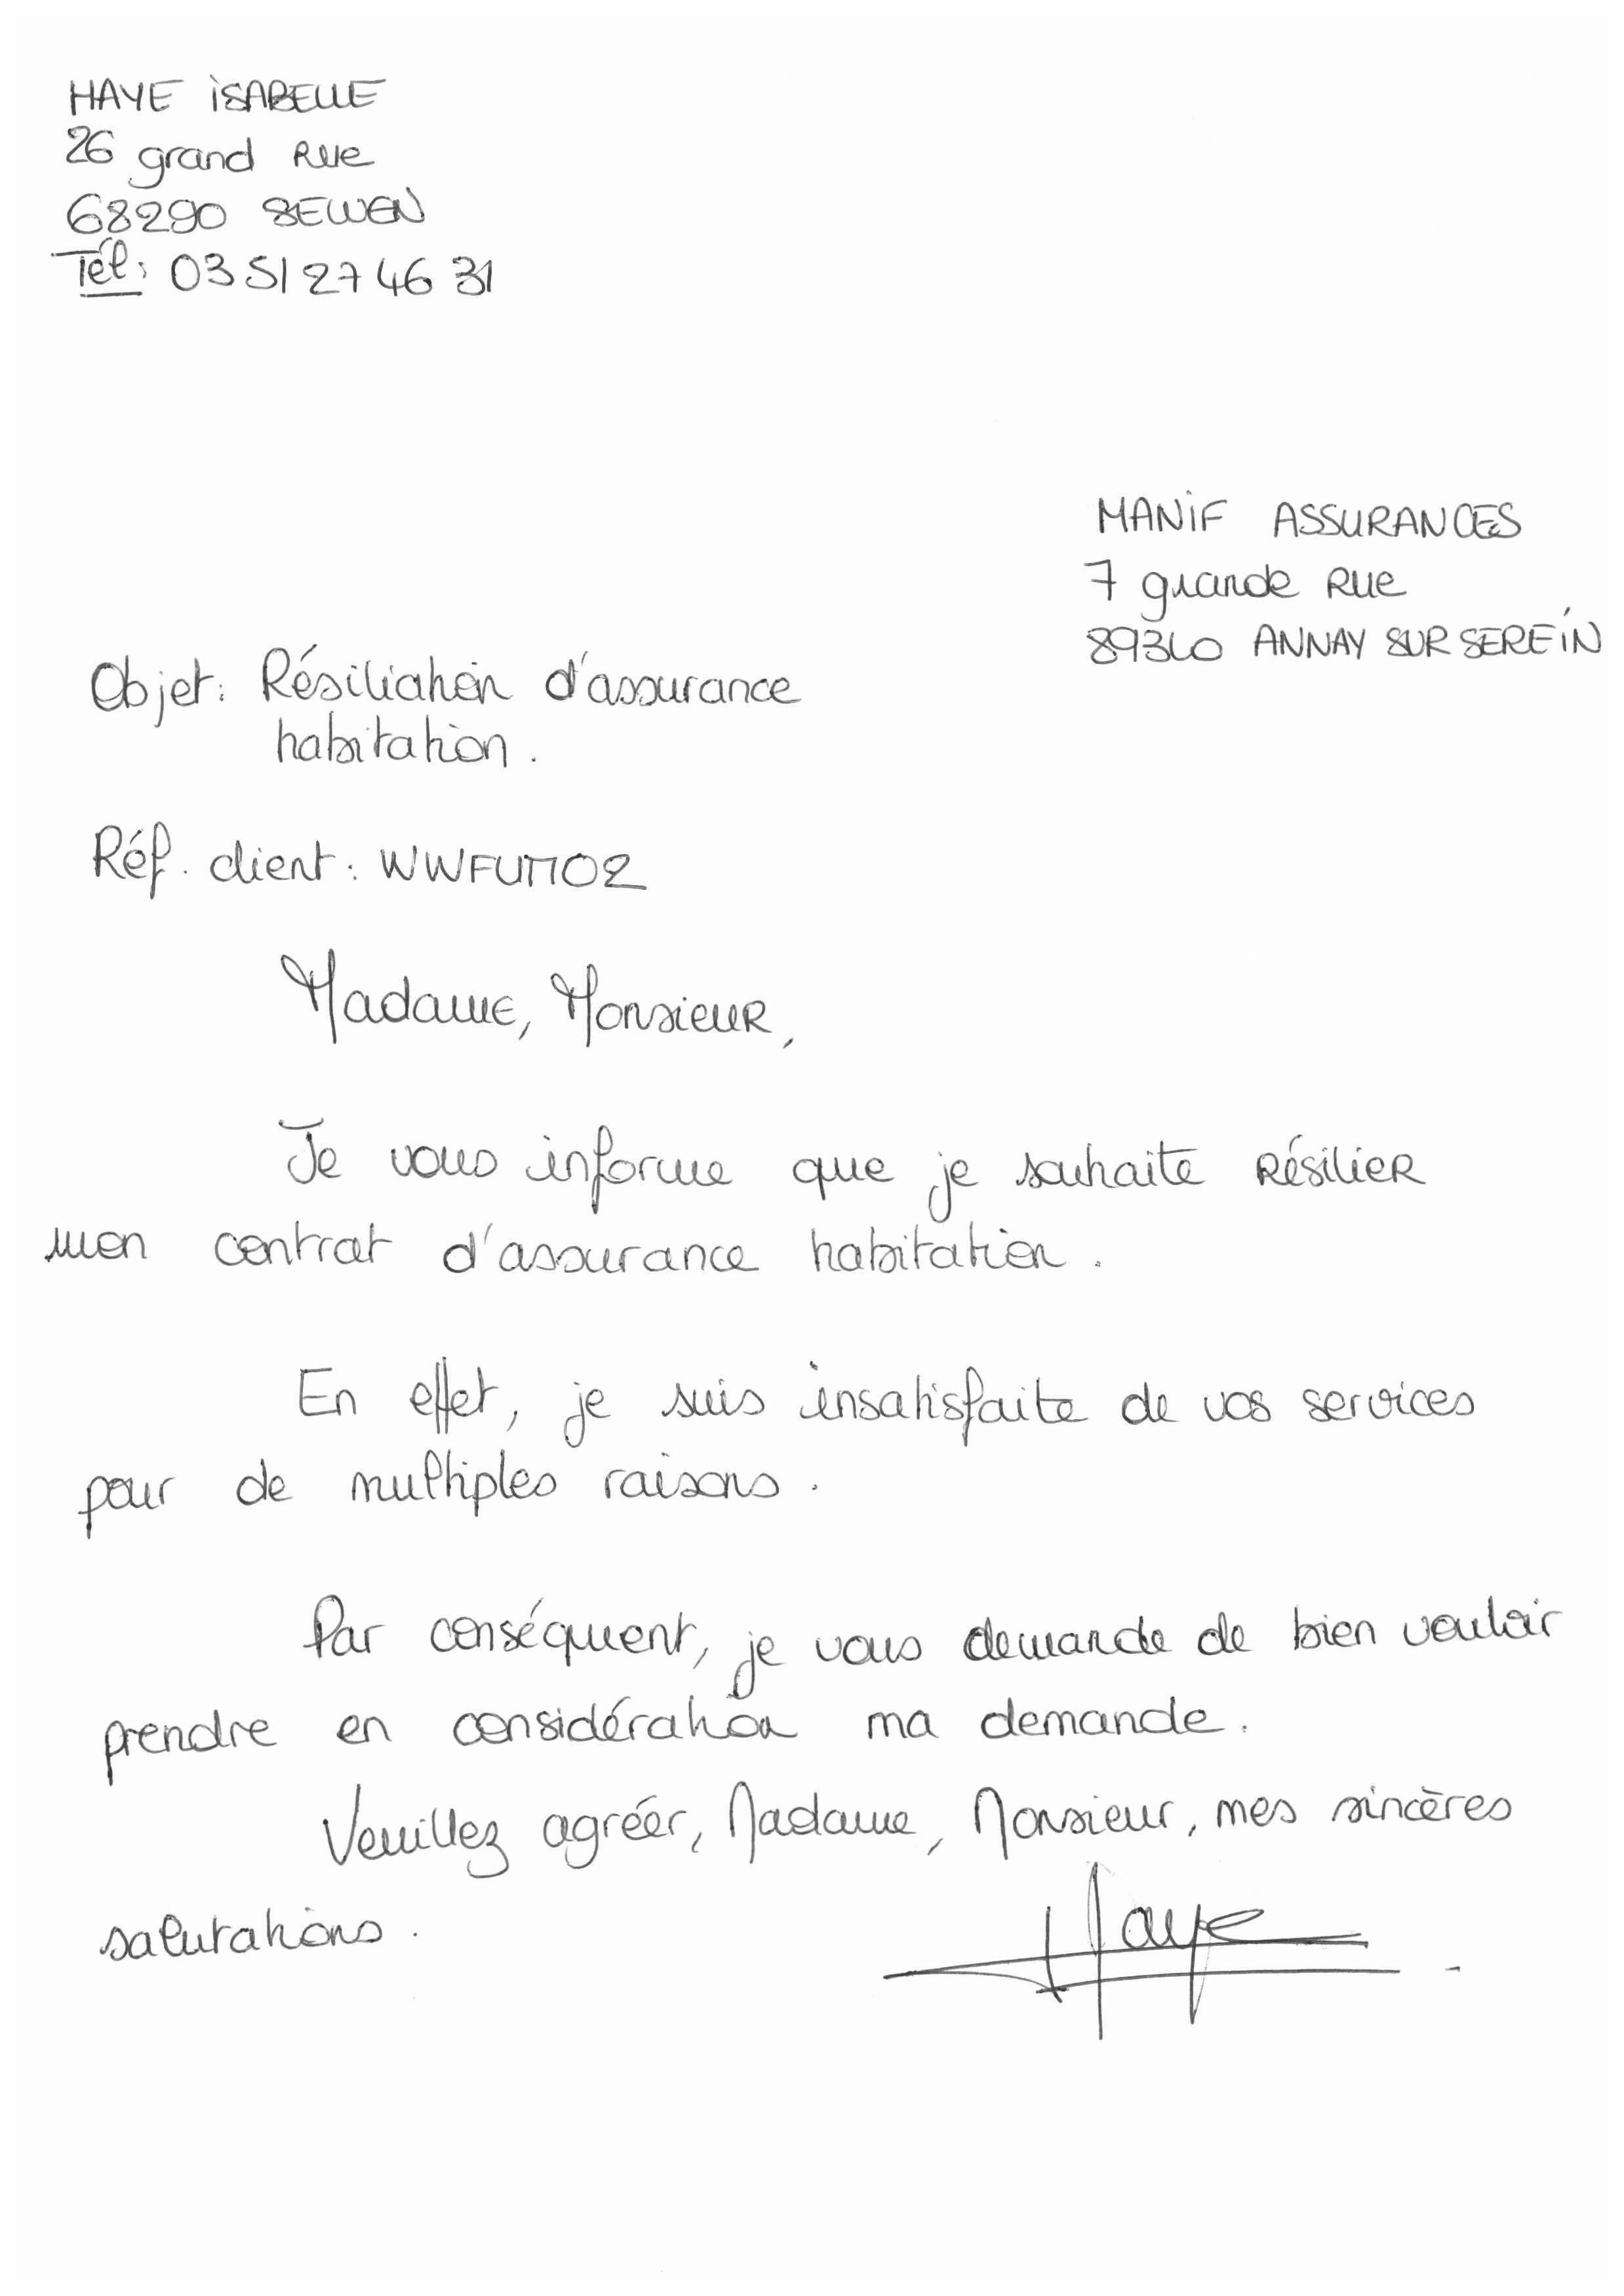 HAYE ISABELLE
26 grand Rue
68290 SEWEN
Tél: 03 51 27 46 31
MANIF ASSURANCES
7 grande Rue
89310 ANNAY SUR SEREIN
Objet: Résiliation d'assurance
habitation.
Réf. client: WWFUM02
Madame, Monsieur,
Je vous informe que je souhaite Résilier
mon contrat d'assurance habitation.
En effet, je suis insatisfaite de vos services
pour de multiples raisons.
Par conséquent, je vous demande de bien vouloir
prendre en considération ma demande.
Veuillez agréer, Madame, Monsieur, mes sincères
salutations.
Haye